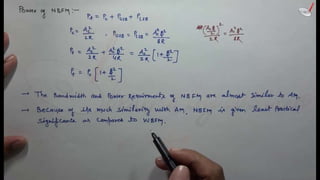 Power of NBFM:-
Pt = Pc + PUSB + PLSB
Pc = Ac²/2R , PUSB = PLSB = Ac²β²/8R
(Acβ/2)²/2R = Ac²β²/8R
Pt = Ac²/2R + Ac²β²/4R = Ac²/2R [1+β²/2]
Pt = Pc [1+β²/2]
→ The Bandwidth and Power Requirments of NBFM are almost Similar to AM.
→ Because of its much Similarity with AM, NBFM is given least Practical
Significance as compared to WBFM.